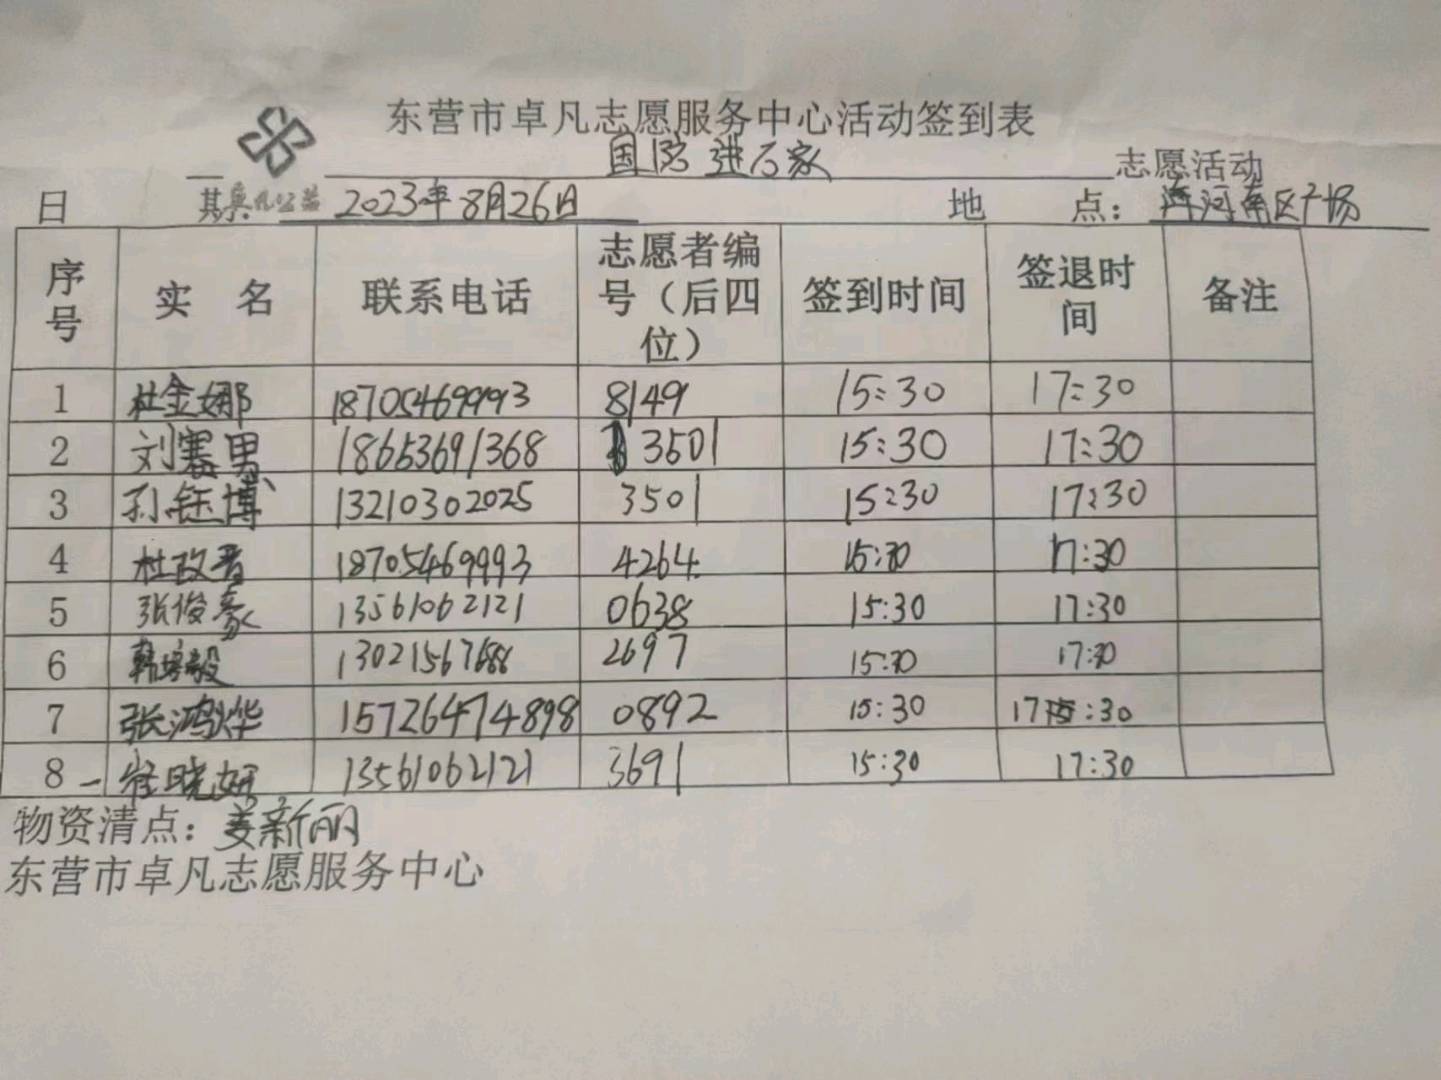 东营市卓凡志愿服务中心活动签到表
国防进万家 志愿活动
日 其 卓凡公益 2023年8月26日 地 点： 河南区广场
序号 实 名 联系电话 志愿者编号（后四位） 签到时间 签退时间 备注
1 杜金娜 18705469993 8149 15:30 17:30
2 刘赛男 18653691368 3501 15:30 17:30
3 孙钰博 13210302025 3501 15:30 17:30
4 杜改香 18705469993 4264 15:30 17:30
5 张俊豪 13561062121 0638 15:30 17:30
6 韩毅 13021567688 2697 15:30 17:30
7 张鸿烨 15726474898 0892 15:30 17:30
8 崔晓妍 13561062121 3691 15:30 17:30
物资清点：姜新丽
东营市卓凡志愿服务中心